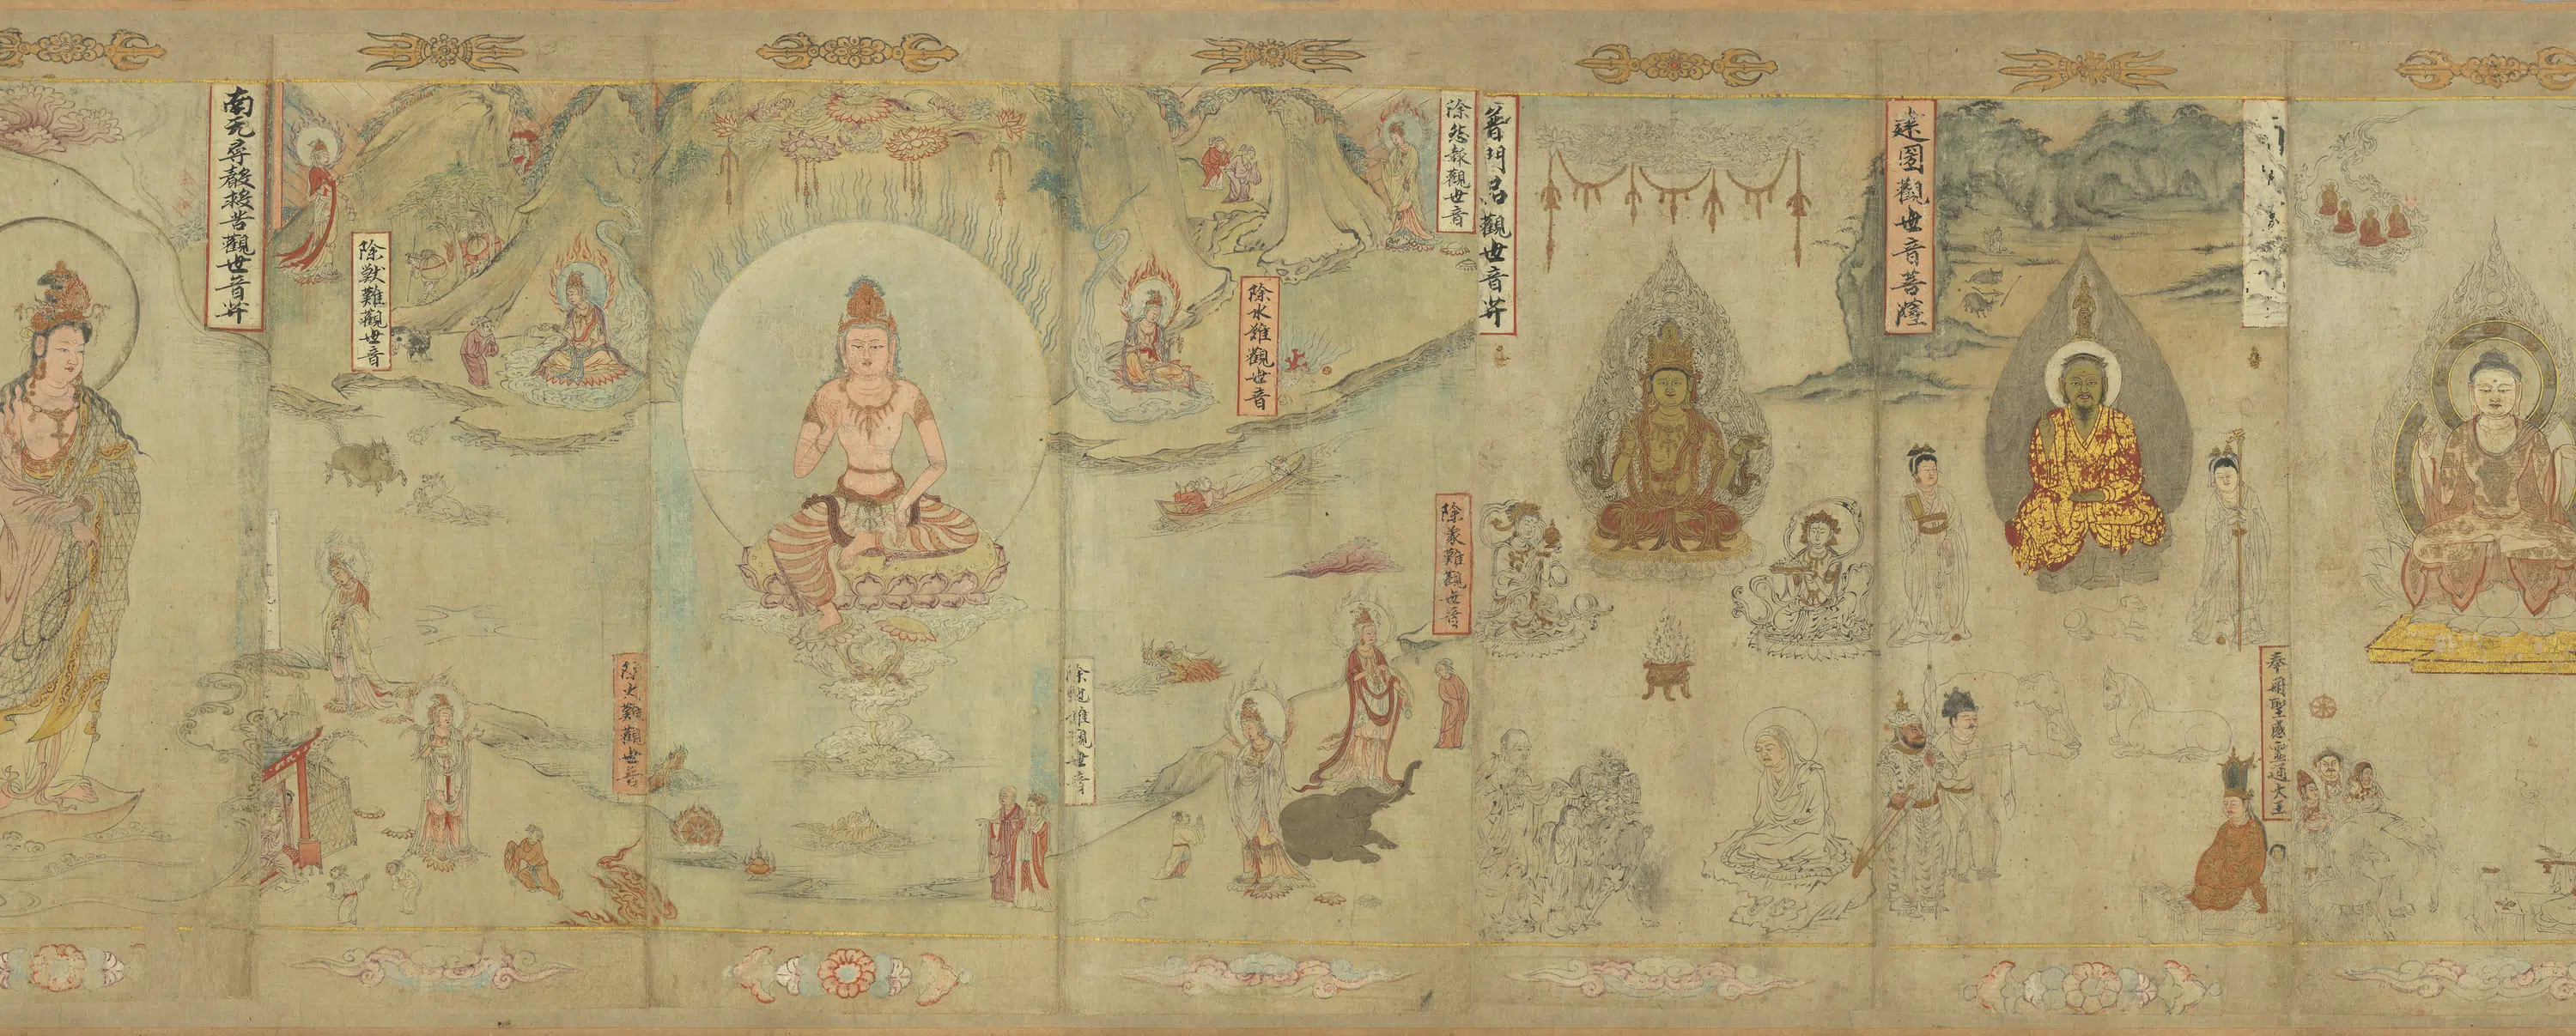 奉冊聖感靈通大王
建圀觀世音菩薩
普門品觀世音𦬇
除怨報觀世音
除象難觀世音
除水難觀世音
除虵難觀世音
除火難觀世音
除獸難觀世音
南无尋聲救苦觀世音𦬇